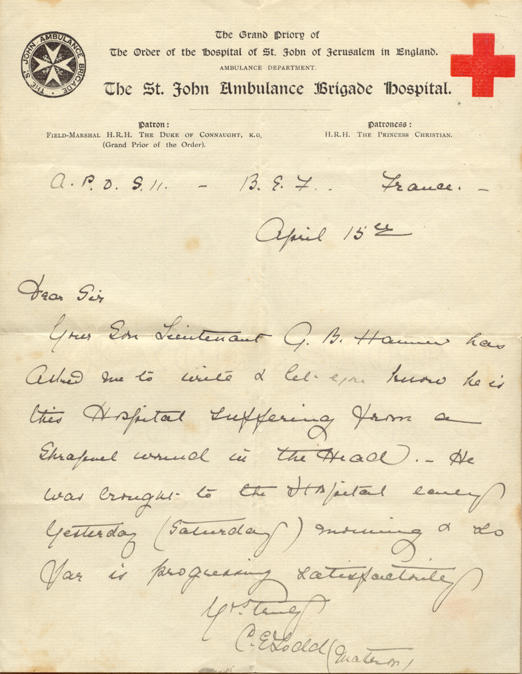 The Grand Priory of
The Order of the Hospital of St. John of Jerusalem in England.
AMBULANCE DEPARTMENT.
The St. John Ambulance Brigade Hospital.
THE ST JOHN AMBULANCE BRIGADE
Patron:
FIELD-MARSHAL H.R.H. THE DUKE OF CONNAUGHT, K.G,
(Grand Prior of the Order).
Patroness:
H.R.H. THE PRINCESS CHRISTIAN.
A.P.O. S.11. - B.E.F.. France. -
April 15th
Dear Sir
Your Son Lieutenant G. B. Hanmer has
asked me to write & let you know he is
this Hospital suffering from a
Shrapnel wound in the Head. - He
was brought to the Hospital early
Yesterday (Saturday) morning & so
far is progressing satisfactorily
Yrs truly
C. E. Todd (Matron)